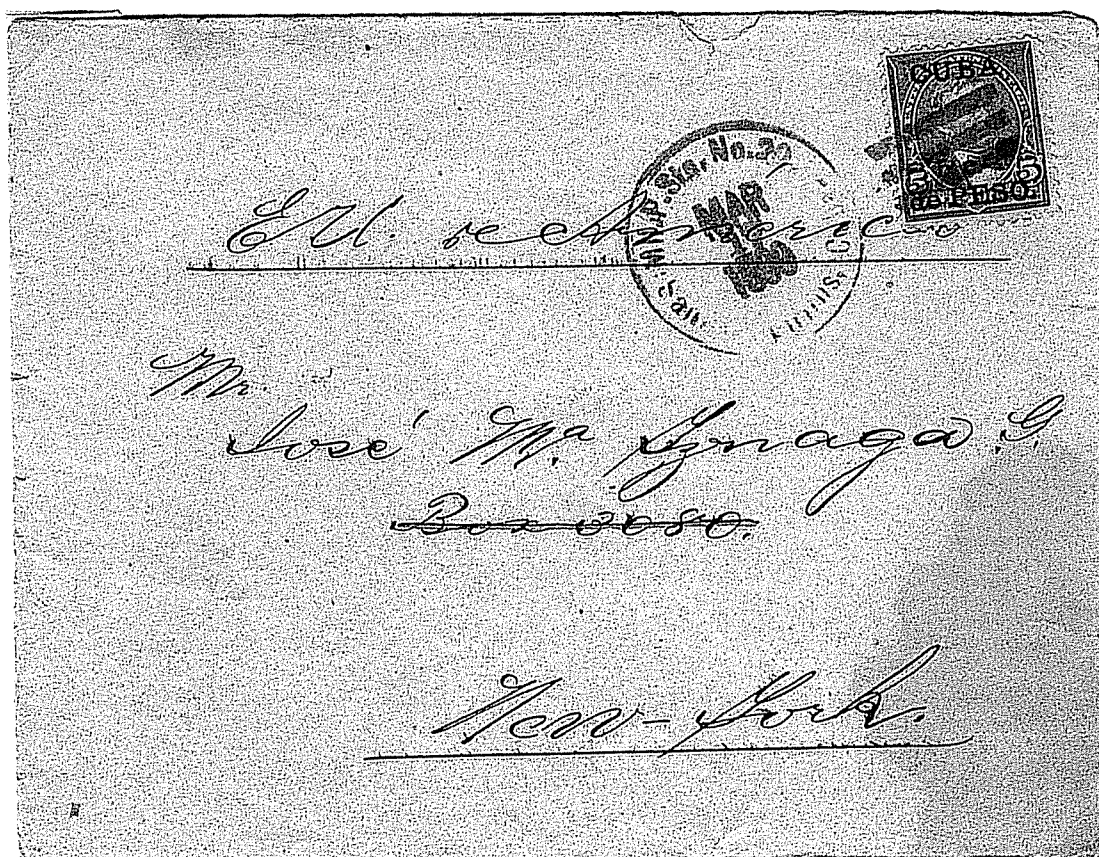 CUBA
5 5
de PESO.
Mil. P. Sta. No. 
MAR
1
1899
EU. de America
Mr
José Ma. Yznaga G.
Box 3080.
New-York.